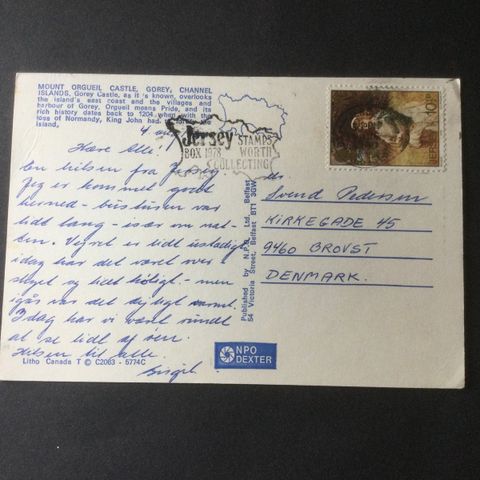 MOUNT ORGUEIL CASTLE, GOREY, CHANNEL
ISLANDS, Gorey Castle, as it is known, overlooks
the island's east coast and the villages and
harbour of Gorey. Orgueil means Pride, and its
rich history dates back to 1204 when with the
loss of Normandy, King John had
island.
4 aug
Kære Alle!
En hilsen fra Jersey
Jeg er kommet godt
herned - busturen var
lidt lang - især om nat-
ten. Vejret er lidt ustadigt
idag har det været over-
skyet og lidt køligt - men
igår var det dejligt varmt.
Idag har vi været rundt
at se lidt af øen.
Hilsen til alle.
Birgit
Litho Canada T © C2063 - 5774C
Jersey
BOX 1978
STAMPS
WORTH
COLLECTING
Published by N.P.O. Ltd., Belfast
54 Victoria Street, Belfast BT1 3GW
NPO
DEXTER
Svend Pedersen
KIRKEGADE 45
9460 BROVST
DENMARK.